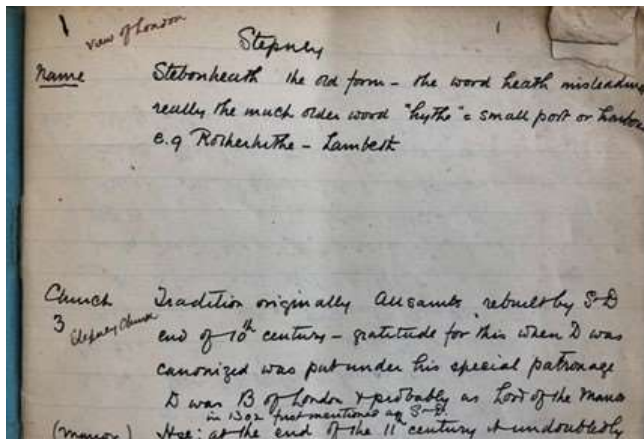 1
view of London
1
Stepney
Name Stebonheath the old form - the word heath misleading
really the much older word "hythe" = small port or harbour
e.g Rotherhithe - Lambeth
Church Tradition originally All Saints rebuilt by S-D
3 Stepney Church end of 10th century - gratitude for this when D was
canonized was put under his special patronage
D was B of London & probably as Lord of the Manor
in 1302 first mentioned as S-D
(Manor) at the end of the 11th century & undoubtedly